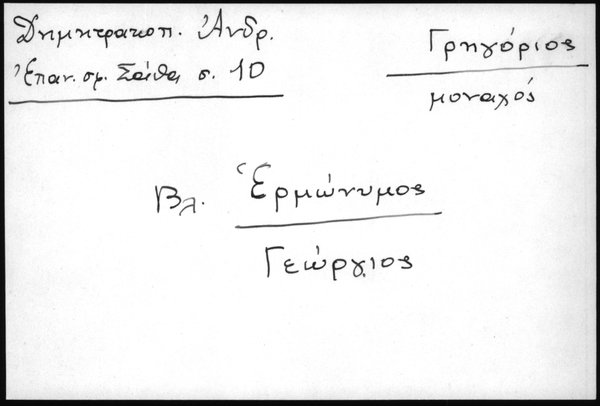 Δημητρακοπ. Ἀνδρ.
Ἐπαν. σφ. Σάθα σ. 10
Γρηγόριος
μοναχός
Βλ. Ἑρμώνυμος
Γεώργιος